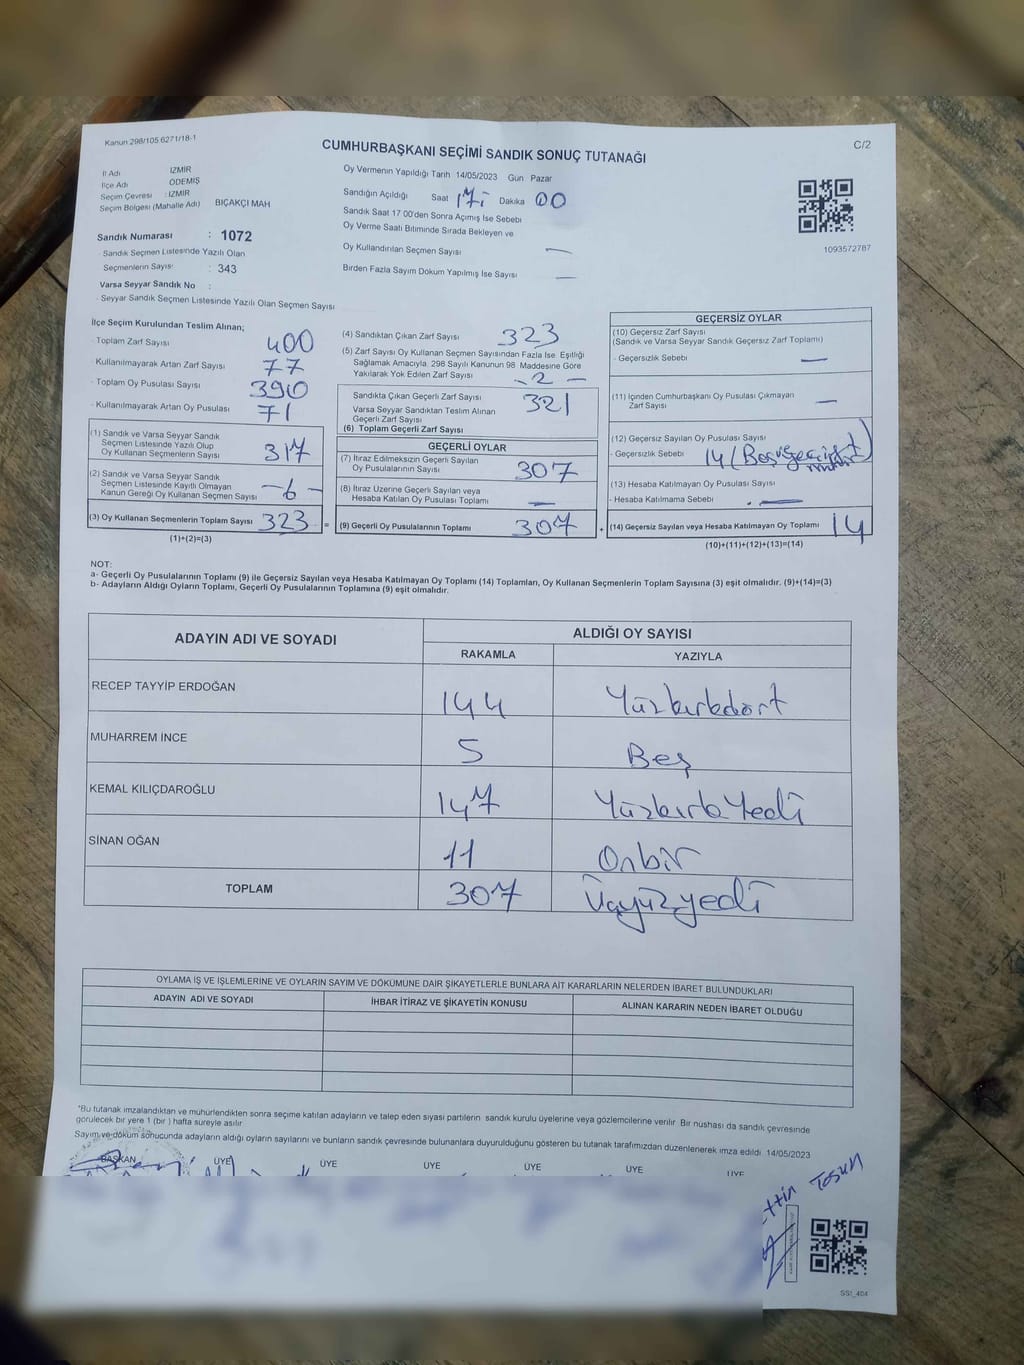 Kanun 298/105 6271/18-1
CUMHURBAŞKANI SEÇİMİ SANDIK SONUÇ TUTANAĞI
C/2
İl Adı İZMİR
İlçe Adı ÖDEMİŞ
Seçim Çevresi : İZMİR
Seçim Bölgesi (Mahalle Adı) BIÇAKÇI MAH
Sandık Numarası : 1072
Sandık Seçmen Listesinde Yazılı Olan
Seçmenlerin Sayısı : 343
Varsa Seyyar Sandık No :
Seyyar Sandık Seçmen Listesinde Yazılı Olan Seçmen Sayısı
Oy Vermenin Yapıldığı Tarih 14/05/2023 Gün Pazar
Sandığın Açıldığı Saat 17: Dakika 00
Sandık Saat 17 00'den Sonra Açımış İse Sebebi
Oy Verme Saati Bitiminde Sırada Bekleyen ve
Oy Kullandırılan Seçmen Sayısı —
Birden Fazla Sayım Döküm Yapılmış İse Sayısı —
1093572787
İlçe Seçim Kurulundan Teslim Alınan;
Toplam Zarf Sayısı 400
Kullanılmayarak Artan Zarf Sayısı 77
Toplam Oy Pusulası Sayısı 390
Kullanılmayarak Artan Oy Pusulası 71
(1) Sandık ve Varsa Seyyar Sandık
Seçmen Listesinde Yazılı Olup
Oy Kullanan Seçmenlerin Sayısı 317
(2) Sandık ve Varsa Seyyar Sandık
Seçmen Listesinde Kayıtlı Olmayan
Kanun Gereği Oy Kullanan Seçmen Sayısı – 6 –
(3) Oy Kullanan Seçmenlerin Toplam Sayısı 323 =
(1)+(2)=(3)
(4) Sandıktan Çıkan Zarf Sayısı 323
(5) Zarf Sayısı Oy Kullanan Seçmen Sayısından Fazla İse, Eşitliği
Sağlamak Amacıyla, 298 Sayılı Kanunun 98 Maddesine Göre
Yakılarak Yok Edilen Zarf Sayısı - 2 –
Sandıkta Çıkan Geçerli Zarf Sayısı 321
Varsa Seyyar Sandıktan Teslim Alınan
Geçerli Zarf Sayısı
(6) Toplam Geçerli Zarf Sayısı
GEÇERLİ OYLAR
(7) İtiraz Edilmeksizin Geçerli Sayılan
Oy Pusulalarının Sayısı 307
(8) İtiraz Üzerine Geçerli Sayılan veya
Hesaba Katılan Oy Pusulası Toplamı —
(9) Geçerli Oy Pusulalarının Toplamı 307 +
GEÇERSİZ OYLAR
(10) Geçersiz Zarf Sayısı
(Sandık ve Varsa Seyyar Sandık Geçersiz Zarf Toplamı)
- Geçersizlik Sebebi —
(11) İçinden Cumhurbaşkanı Oy Pusulası Çıkmayan
Zarf Sayısı —
(12) Geçersiz Sayılan Oy Pusulası Sayısı
- Geçersizlik Sebebi 14 (Boş
(13) Hesaba Katılmayan Oy Pusulası Sayısı
- Hesaba Katılmama Sebebi —
(14) Geçersiz Sayılan veya Hesaba Katılmayan Oy Toplamı 14
(10)+(11)+(12)+(13)=(14)
NOT:
a- Geçerli Oy Pusulalarının Toplamı (9) ile Geçersiz Sayılan veya Hesaba Katılmayan Oy Toplamı (14) Toplamları, Oy Kullanan Seçmenlerin Toplam Sayısına (3) eşit olmalıdır. (9)+(14)=(3)
b- Adayların Aldığı Oyların Toplamı, Geçerli Oy Pusulalarının Toplamına (9) eşit olmalıdır.
ADAYIN ADI VE SOYADI ALDIĞI OY SAYISI
RAKAMLA YAZIYLA
RECEP TAYYİP ERDOĞAN 144 Yüzkırkdört
MUHARREM İNCE 5 Beş
KEMAL KILIÇDAROĞLU 147 Yüzkırk Yedi
SİNAN OĞAN 11 Onbir
TOPLAM 307 Üçyüzyedi
OYLAMA İŞ VE İŞLEMLERİNE VE OYLARIN SAYIM VE DÖKÜMÜNE DAİR ŞİKAYETLERLE BUNLARA AİT KARARLARIN NELERDEN İBARET BULUNDUKLARI
ADAYIN ADI VE SOYADI İHBAR İTİRAZ VE ŞİKAYETİN KONUSU ALINAN KARARIN NEDEN İBARET OLDUĞU
*Bu tutanak imzalandıktan ve mühürlendikten sonra seçime katılan adayların ve talep eden siyasi partilerin sandık kurulu üyelerine veya gözlemcilerine verilir. Bir nüshası da sandık çevresinde
görülecek bir yere 1 (bir ) hafta süreyle asılır
Sayım ve döküm sonucunda adayların aldığı oyların sayılarını ve bunların sandık çevresinde bulunanlara duyurulduğunu gösteren bu tutanak tarafımızdan düzenlenerek imza edildi 14/05/2023
BAŞKAN ÜYE ÜYE ÜYE ÜYE ÜYE ÜYE
ettin Tosun
SSt_404